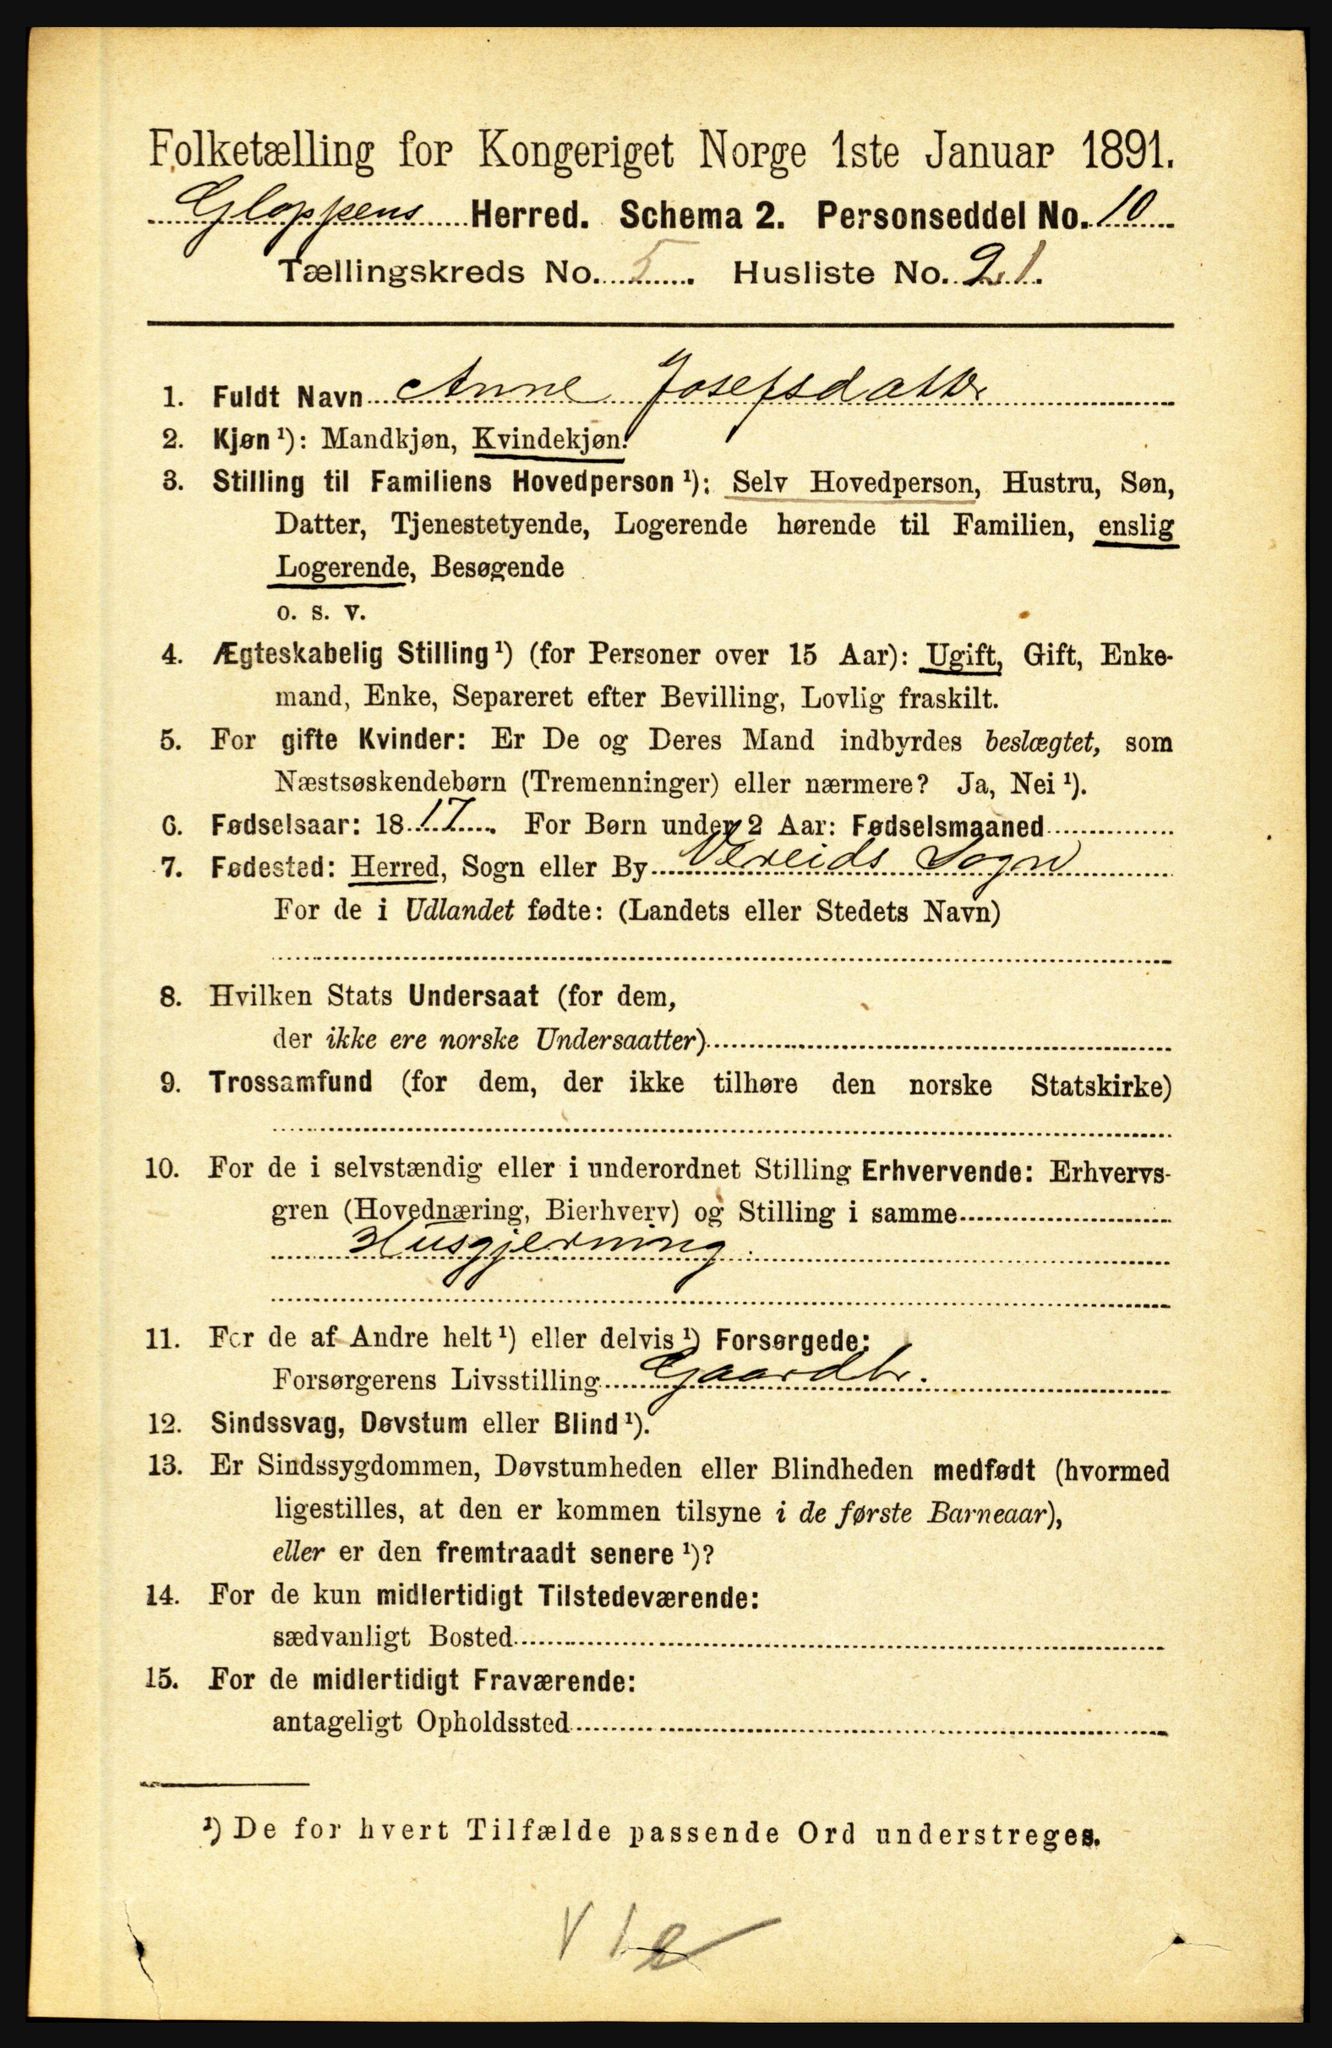 Folketælling for Kongeriget Norge 1ste Januar 1891.
Gloppens Herred. Schema 2. Personseddel No. 10
Tællingskreds No. 5. Husliste No. 21.
1. Fuldt Navn Anne Josefsdatter
2. Kjøn ¹): Mandkjøn, Kvindekjøn.
3. Stilling til Familiens Hovedperson ¹): Selv Hovedperson, Hustru, Søn,
Datter, Tjenestetyende, Logerende hørende til Familien, enslig
Logerende, Besøgende
o. s. v.
4. Ægteskabelig Stilling ¹) (for Personer over 15 Aar): Ugift, Gift, Enke-
mand, Enke, Separeret efter Bevilling, Lovlig fraskilt.
5. For gifte Kvinder: Er De og Deres Mand indbyrdes beslægtet, som
Næstsøskendebørn (Tremenninger) eller nærmere? Ja, Nei ¹).
6. Fødselsaar: 1817. For Børn under 2 Aar: Fødselsmaaned
7. Fødested: Herred, Sogn eller By Vereids Sogn
For de i Udlandet fødte: (Landets eller Stedets Navn)
8. Hvilken Stats Undersaat (for dem,
der ikke ere norske Undersaatter)
9. Trossamfund (for dem, der ikke tilhøre den norske Statskirke)
10. For de i selvstændig eller i underordnet Stilling Erhvervende: Erhvervs-
gren (Hovednæring, Bierhverv) og Stilling i samme
Husgjerning.
11. For de af Andre helt ¹) eller delvis ¹) Forsørgede:
Forsørgerens Livsstilling Gaardbr.
12. Sindssvag, Døvstum eller Blind ¹).
13. Er Sindssygdommen, Døvstumheden eller Blindheden medfødt (hvormed
ligestilles, at den er kommen tilsyne i de første Barneaar),
eller er den fremtraadt senere ¹)?
14. For de kun midlertidigt Tilstedeværende:
sædvanligt Bosted
15. For de midlertidigt Fraværende:
antageligt Opholdssted
¹) De for hvert Tilfælde passende Ord understreges.